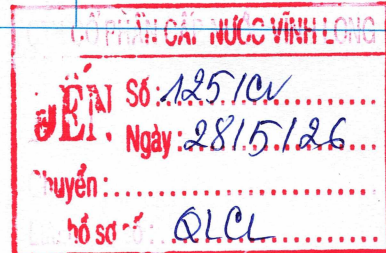 CỔ PHẦN CẤP NƯỚC VĨNH LONG
ĐẾN
Số: 1251CN
Ngày: 28/5/26
Chuyển:
hồ sơ số: QLCL